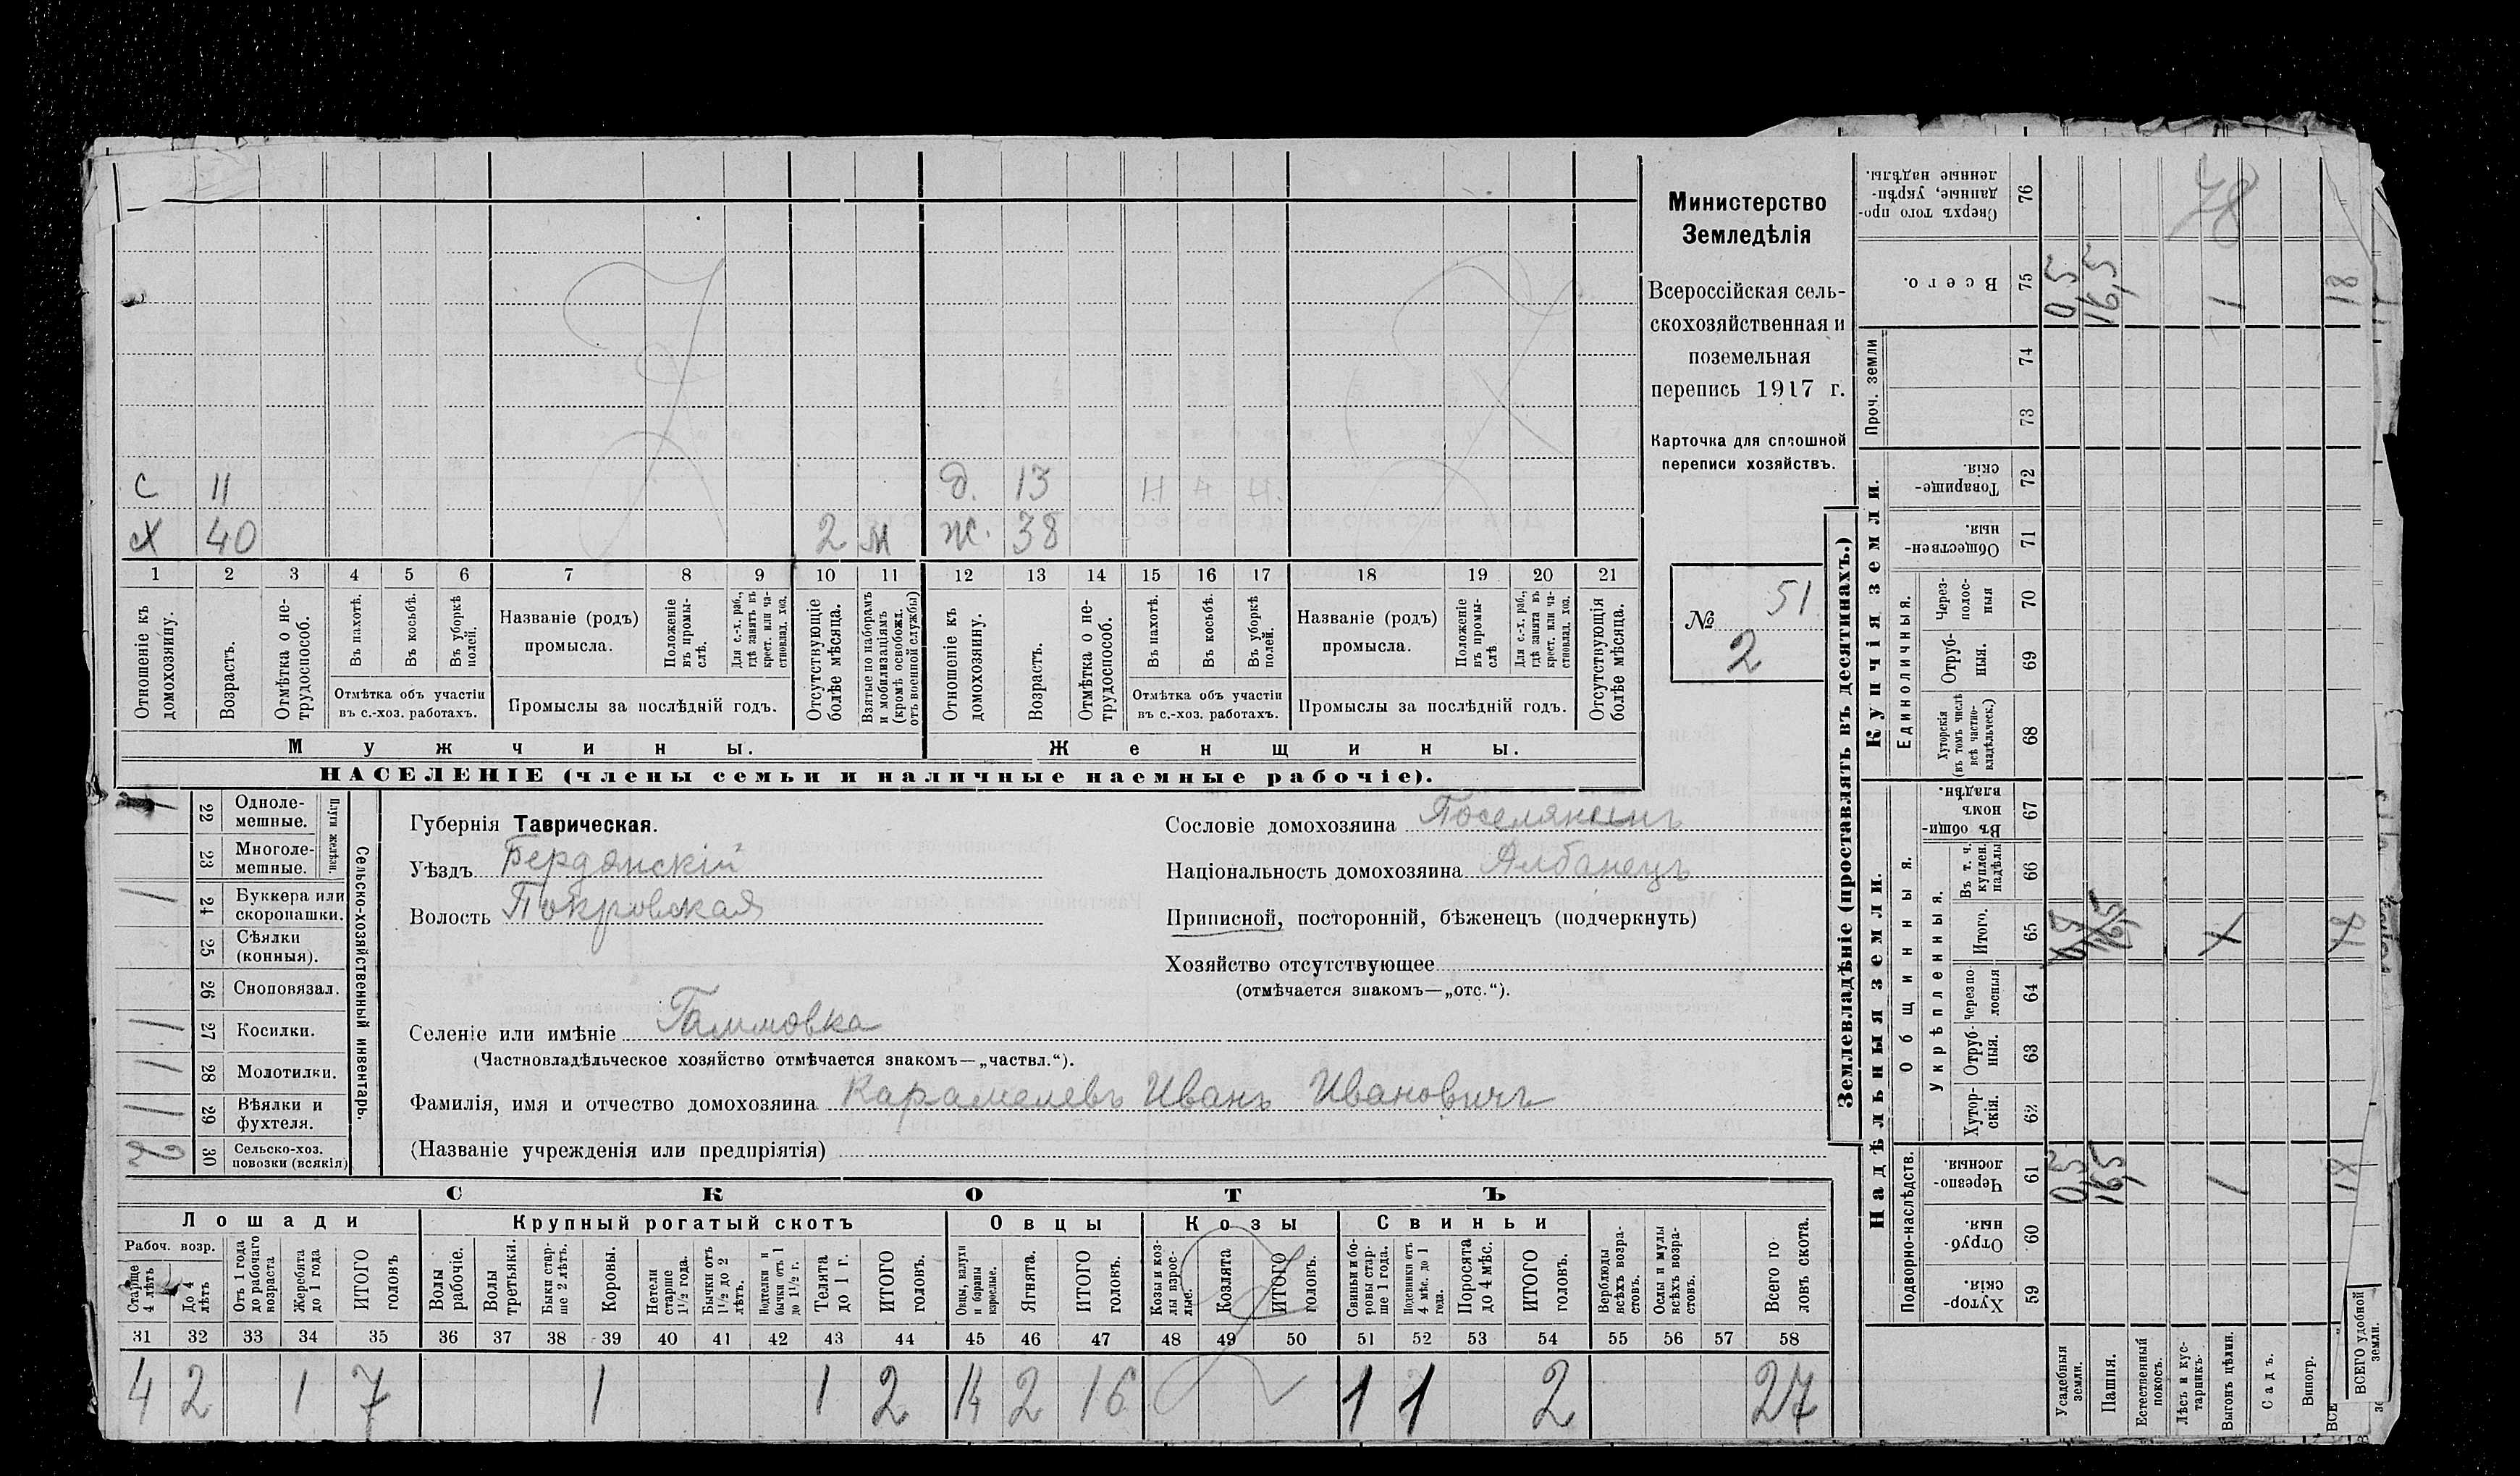 с 11 д. 13 н н н.
х 40 2 м ж. 38
1 2 3 4 5 6 7 8 9 10 11 12 13 14 15 16 17 18 19 20 21
Отношеніе къ домохозяину.
Возрастъ.
Отмѣтка о не-трудоспособ.
Въ пахотѣ.
Въ косьбѣ.
Въ уборкѣ полей.
Отмѣтка объ участіи
въ с.-хоз. работахъ.
Названіе (родъ)
промысла.
Положеніе въ промы-слѣ.
Для с.-х. раб., гдѣ занятъ въ крест. или ча-стновлад. хоз.
Промыслы за послѣдній годъ.
Отсутствующіе болѣе мѣсяца.
Взятые по наборамъ и мобилизаціямъ (кромѣ освобожд. отъ военной службы)
Отношеніе къ домохозяину.
Возрастъ.
Отмѣтка о не-трудоспособ.
Въ пахотѣ.
Въ косьбѣ.
Въ уборкѣ полей.
Отмѣтка объ участіи
въ с.-хоз. работахъ.
Названіе (родъ)
промысла.
Положеніе въ промы-слѣ.
Для с.-х. раб., гдѣ занята въ крест. или ча-стновлад. хоз.
Промыслы за послѣдній годъ.
Отсутствующія болѣе мѣсяца.
Мужчины. Женщины.
НАСЕЛЕНІЕ (члены семьи и наличные наемные рабочіе).
Министерство
Земледѣлія
Всероссійская сель-
скохозяйственная и
поземельная
перепись 1917 г.
Карточка для сплошной
переписи хозяйствъ.
№ 51
2
Сельско-хозяйственный инвентарь.
Плуги желѣзн.
22 Одноле-мешные.
23 Многоле-мешные.
1 24 Буккера или скоропашки.
25 Сѣялки (конныя).
26 Сноповязал.
1 27 Косилки.
1 28 Молотилки.
1 29 Вѣялки и фухтеля.
2 30 Сельско-хоз. повозки (всякія)
Губернія Таврическая.
Уѣздъ Бердянскій
Волость Покровская
Сословіе домохозяина Поселянинъ
Національность домохозяина Албанецъ
Приписной, посторонній, бѣженецъ (подчеркнуть)
Хозяйство отсутствующее
(отмѣчается знакомъ—„отс.“).
Селеніе или имѣніе Гаммовка
(Частновладѣльческое хозяйство отмѣчается знакомъ—„частвл.“).
Фамилія, имя и отчество домохозяина Карамелевъ Иванъ Ивановичъ
(Названіе учрежденія или предпріятія)
СКОТЪ
Лошади Крупный рогатый скотъ Овцы Козы Свиньи
Рабоч. возр.
Старше 4 лѣтъ
До 4 лѣтъ
Отъ 1 года до рабочаго возраста
Жеребята до 1 года
ИТОГО головъ
Волы рабочіе.
Волы третьяки.
Быки стар-ше 2 лѣтъ.
Коровы.
Нетели старше 1½ года.
Бычки отъ 1½ до 2 лѣтъ.
Подтелки и бычки отъ 1 до 1½ г.
Телята до 1 г.
ИТОГО головъ.
Овцы, валухи и бараны взрослые.
Ягнята.
ИТОГО головъ.
Козы и коз-лы взрос-лые.
Козлята
ИТОГО головъ.
Свиньи и бо-ровы стар-ше 1 года.
Подсвинки отъ 4 мѣс. до 1 года.
Поросята до 4 мѣс.
ИТОГО головъ.
Верблюды всѣхъ возра-стовъ.
Ослы и мулы всѣхъ возра-стовъ.
Всего го-ловъ скота.
31 32 33 34 35 36 37 38 39 40 41 42 43 44 45 46 47 48 49 50 51 52 53 54 55 56 57 58
4 2 1 7 1 1 2 14 2 16 1 1 2 27
Землевладѣніе (проставлять въ десятинахъ.)
Надѣльныя земли. Купчія земли. Проч. земли
Подворно-наслѣдств.
Общинныя.
Укрѣпленныя.
Единоличныя.
Сверхъ того про-данные, укрѣп-ленные надѣлы. 76 78
Всего. 75 0,5 16,5 1 18
74
73
Товарище-скія. 72
Обществен-ныя. 71
Через-полос-ныя 70
Отруб-ныя. 69
Хуторскія (въ томъ числѣ всѣ частно-владѣльческ.) 68
Въ общин-номъ владѣн. 67
Въ т. ч. куплен. надѣлы 66
Итого. 65
Черезпо-лосныя 64
Отруб-ныя. 63
Хутор-скія. 62
Черезпо-лосныя. 61 0,5 16,5 1 18
Отруб-ныя. 60
Хутор-скія. 59
Усадебныя земли.
Пашня.
Естественный покосъ.
Лѣсъ и кус-тарникъ.
Выгонъ цѣлин.
Садъ.
Виногр.
ВСЕГО удобной земли.